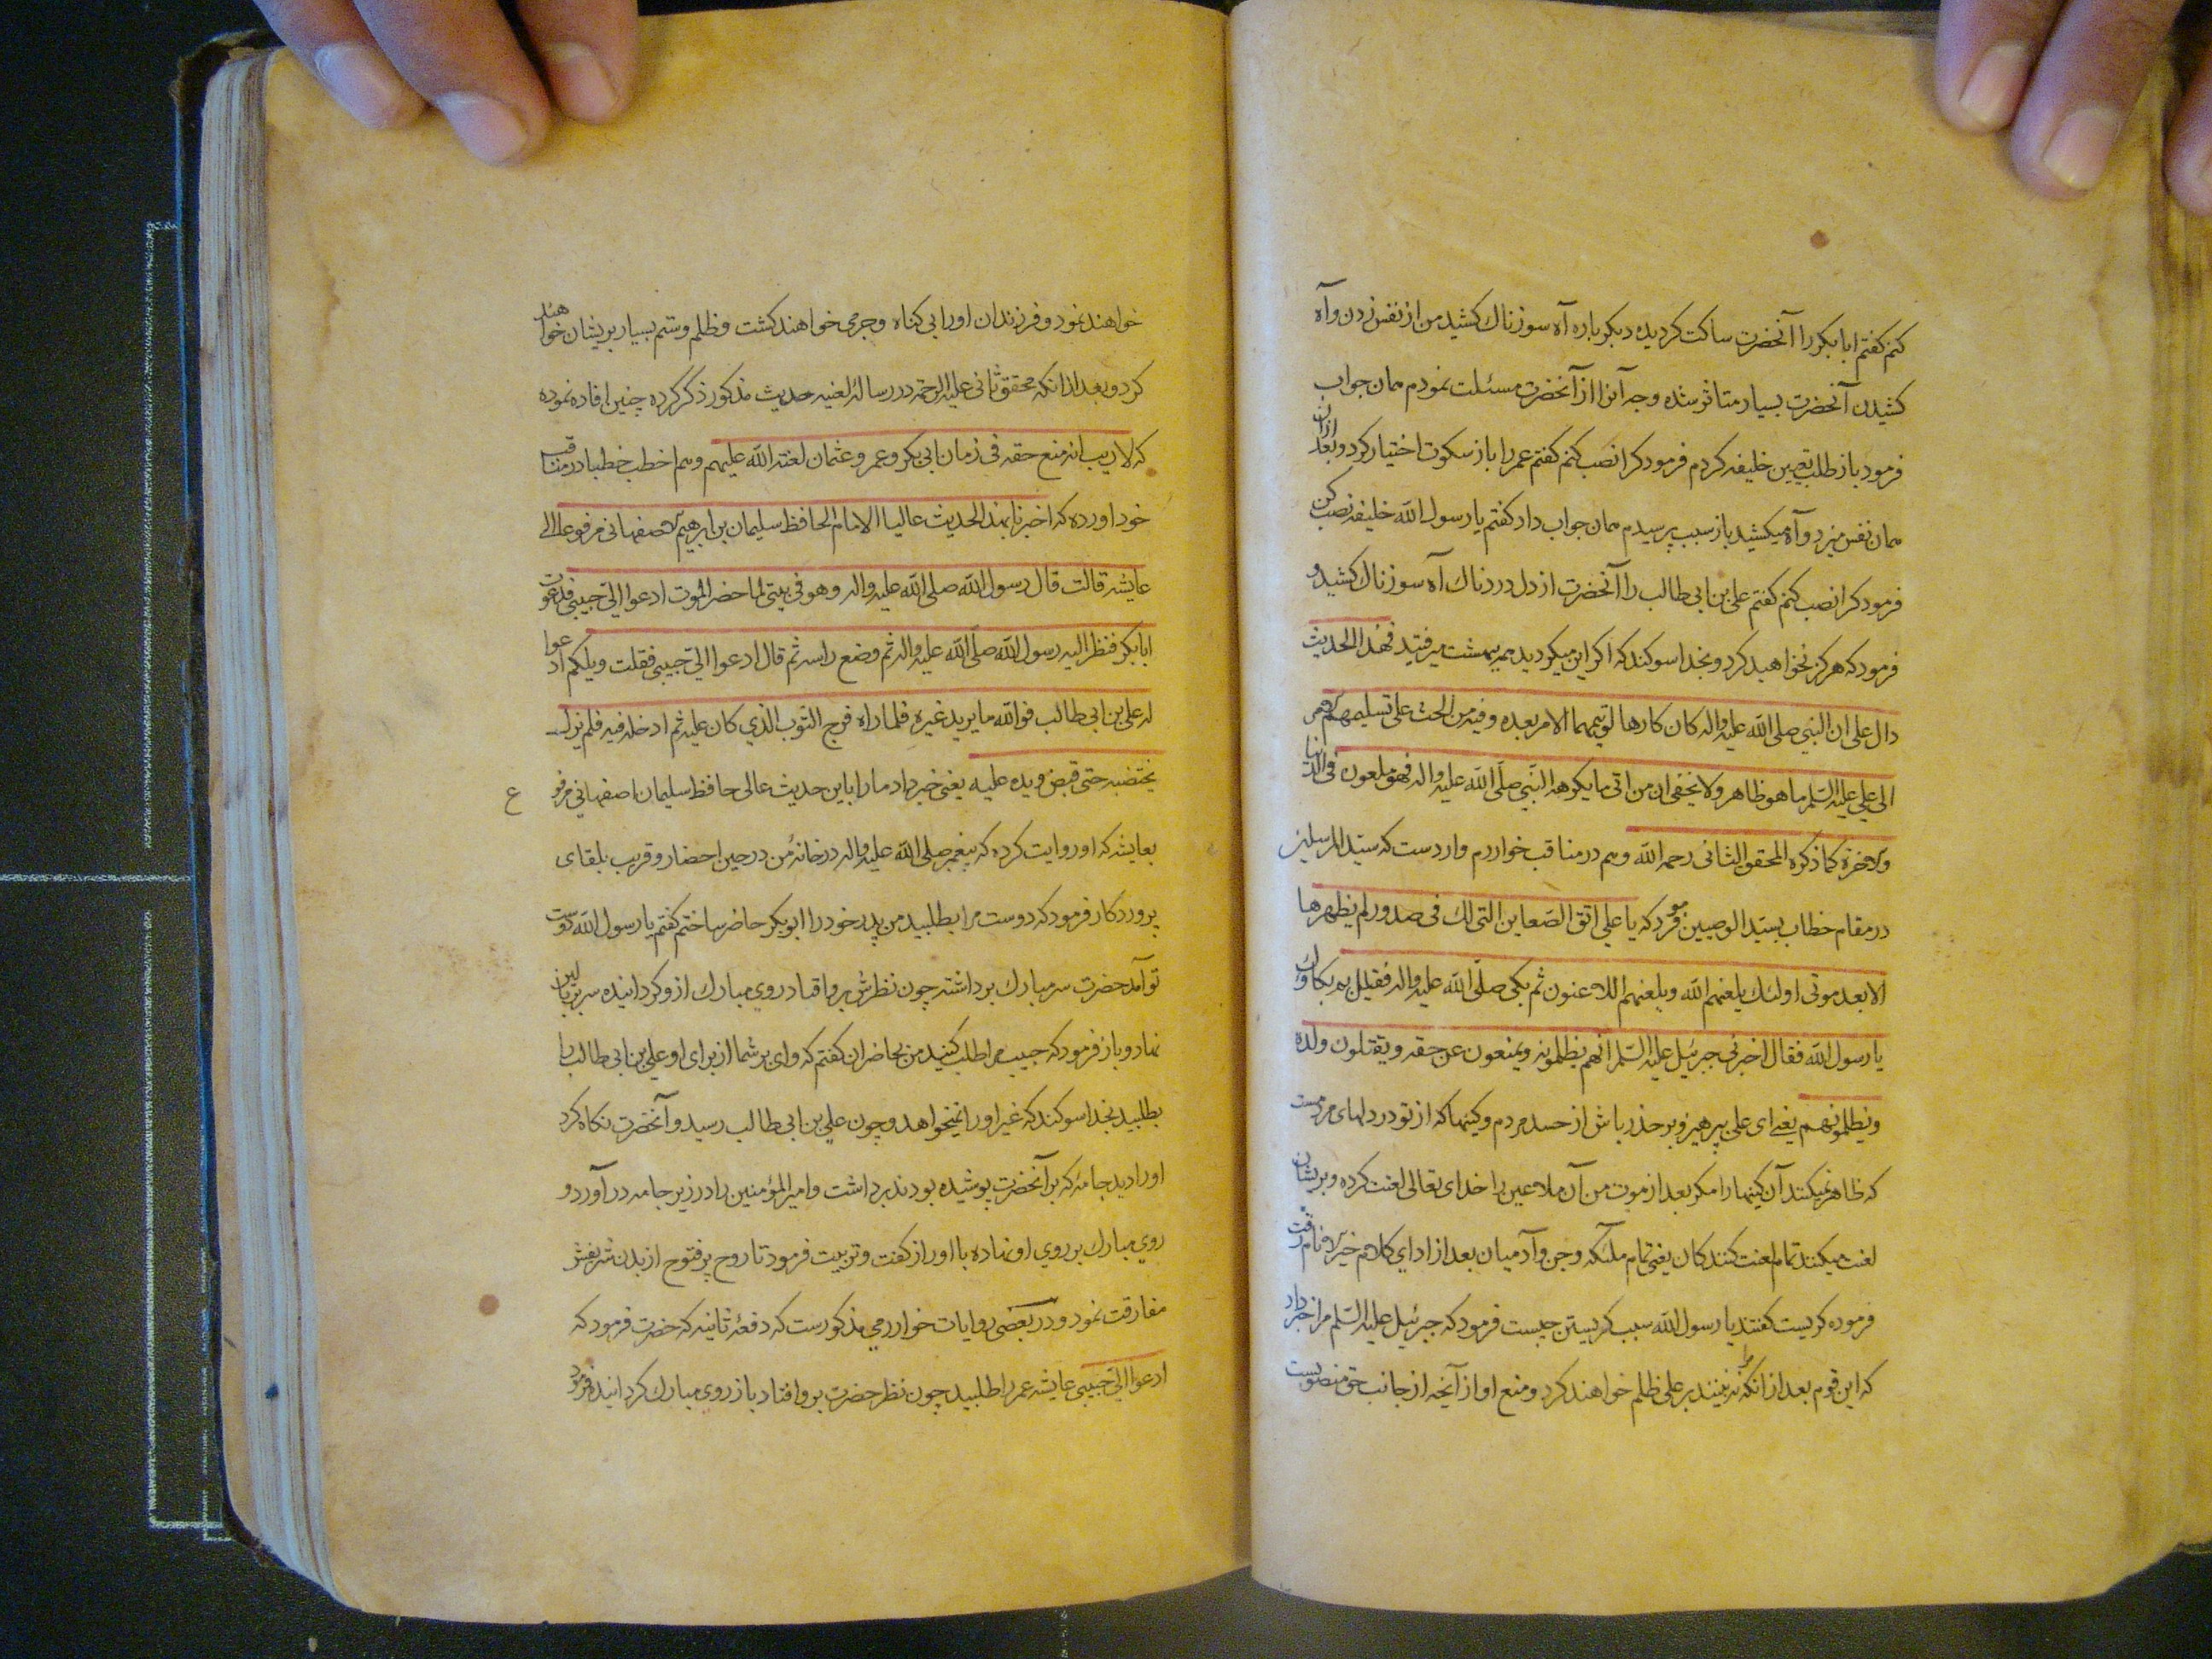 کنم کفتم ابابکر را آنحضرت ساکت کردیده دیکر باره آه سوزناک کشید من از نفس زدن و آه
کشیدن آنحضرت بسیار متاثر شده وجه آنرا از آنحضرت مسئلت نمودم همان جواب
فرمود باز طلب تعیین خلیفه کردم فرمود کرا نصب کنم کفتم عمر را باز سکوت اختیار کرد و بعد ازان
همان نفس میزد و آه میکشید باز سبب پرسیدم همان جواب داد کفتم یا رسول الله خلیفه نصب کن
فرمود کرا نصب کنم کفتم علی بن ابی طالب را آنحضرت از دل دردناک آه سوزناک کشید و
فرمود که هرکز نخواهید کرد و بخدا سوکند که اکر این میکردید همه ببهشت میرفتید فهذا الحدیث
دال علی ان النبی صلی الله علیه واله کان کارها لتولیهما الامر بعده وفیه من الحث علی تسلیمهم الامر
الی علی علیه السلم ما هو ظاهر ولا یخفی ان من اتی ما یکرهه النبی صلی الله علیه واله فهو ملعون فی الدنیا
والاخرة کما ذکره المحقق الثانی رحمه الله وهم در مناقب خوارزم واردست که سید المرسلین
در مقام خطاب بسید الوصیین فرمود که یا علی اتق الضغاین التی لک فی صدور لم یظهرها
الا بعد موتی اولئک یلعنهم الله ویلعنهم اللاعنون ثم بکی صلی الله علیه واله فقیل مم بکاؤک
یا رسول الله فقال اخبرنی جبرئیل علیه السلم انهم یظلمونه ویمنعون عن حقه ویقتلون ولده
ویظلمونهم یعنی ای علی بپرهیز و برحذر باش از حسد مردم و کینها که از تو در دلهای مردمست
که ظاهر نمیکنند آن کینها را مکر بعد از موت من آن ملاعین را خدای تعالی لعنت کرده و بریشان
لعنت میکنند تمام لعنت کنندکان یعنی تمام ملئکه و جن و آدمیان بعد از ادای کلام خیر الانام رقت
فرموده کریست کفتند یا رسول الله سبب کریستن چیست فرمود که جبرئیل علیه السلم مرا خبر داد
که این قوم بعد از انکه مرا نه بینند بر علی ظلم خواهند کرد و منع او از آنچه از جانب حق منصوبست
خواهند نمود و فرزندان او را بی کناه و جرمی خواهند کشت و ظلم و ستم بسیار بریشان خواهند
کرد و بعد از انکه محقق ثانی علیه الرحمه در رساله لعنیه حدیث مذکور ذکر کرده چنین افاده نموده
که لا ریب انه منع حقه فی زمان ابی بکر وعمر وعثمان لعنة الله علیهم وهم اخطب خطبا در مناقب
خود اورده که اخبرنا بهذا الحدیث عالیا الامام الحافظ سلیمان بن ابرهیم الاصفهانی مرفوعا الی
عایشه قالت قال رسول الله صلی الله علیه واله وهو فی بیتی لما حضر الموت ادعوا الی حبیبی فدعوت
ابابکر فنظر الیه رسول الله صلی الله علیه واله ثم وضع راسه ثم قال ادعوا الی حبیبی فقلت ویلکم ادعوا
له علی بن ابی طالب فوالله ما یرید غیره فلما راه فرج الثوب الذی کان علیه ثم ادخله فیه فلم یزل
یحتضنه حتی قبض ویده علیه یعنی خبر داد ما را باین حدیث عالی حافظ سلیمان اصفهانی مرفو
ع
بعایشه که او روایت کرده که پیغمبر صلی الله علیه واله در خانه من در حین احضار و قریب بلقای
پروردکار فرمود که دوست مرا بطلبید من پدر خود را ابوبکر حاضر ساختم کفتم یا رسول الله دوست
تو آمد حضرت سر مبارک برداشته چون نظرش برو افتاد روی مبارک ازو کردانیده سر ببالین
نهاد و باز فرمود که حبیب مرا طلب کنید من بحاضران کفتم که وای بر شما از برای او علی بن ابی طالب را
بطلبید بخدا سوکند که غیر او را نمیخواهد و چون علی بن ابی طالب رسید و آنحضرت نکاه کرد
او را دید جامه که بر آنحضرت پوشیده بودند برداشت و امیر المؤمنین را در زیر جامه در آورد و
روی مبارک بر روی او نهاده با او راز کفت و تربیت فرمود تا روح پرفتوح از بدن شریفش
مفارقت نمود و در بعضی روایات خوارزمی مذکورست که دفعه ثانیه که حضرت فرمود که
ادعوا الی حبیبی عایشه عمر را طلبید چون نظر حضرت برو افتاد باز روی مبارک کردانیده فرمود